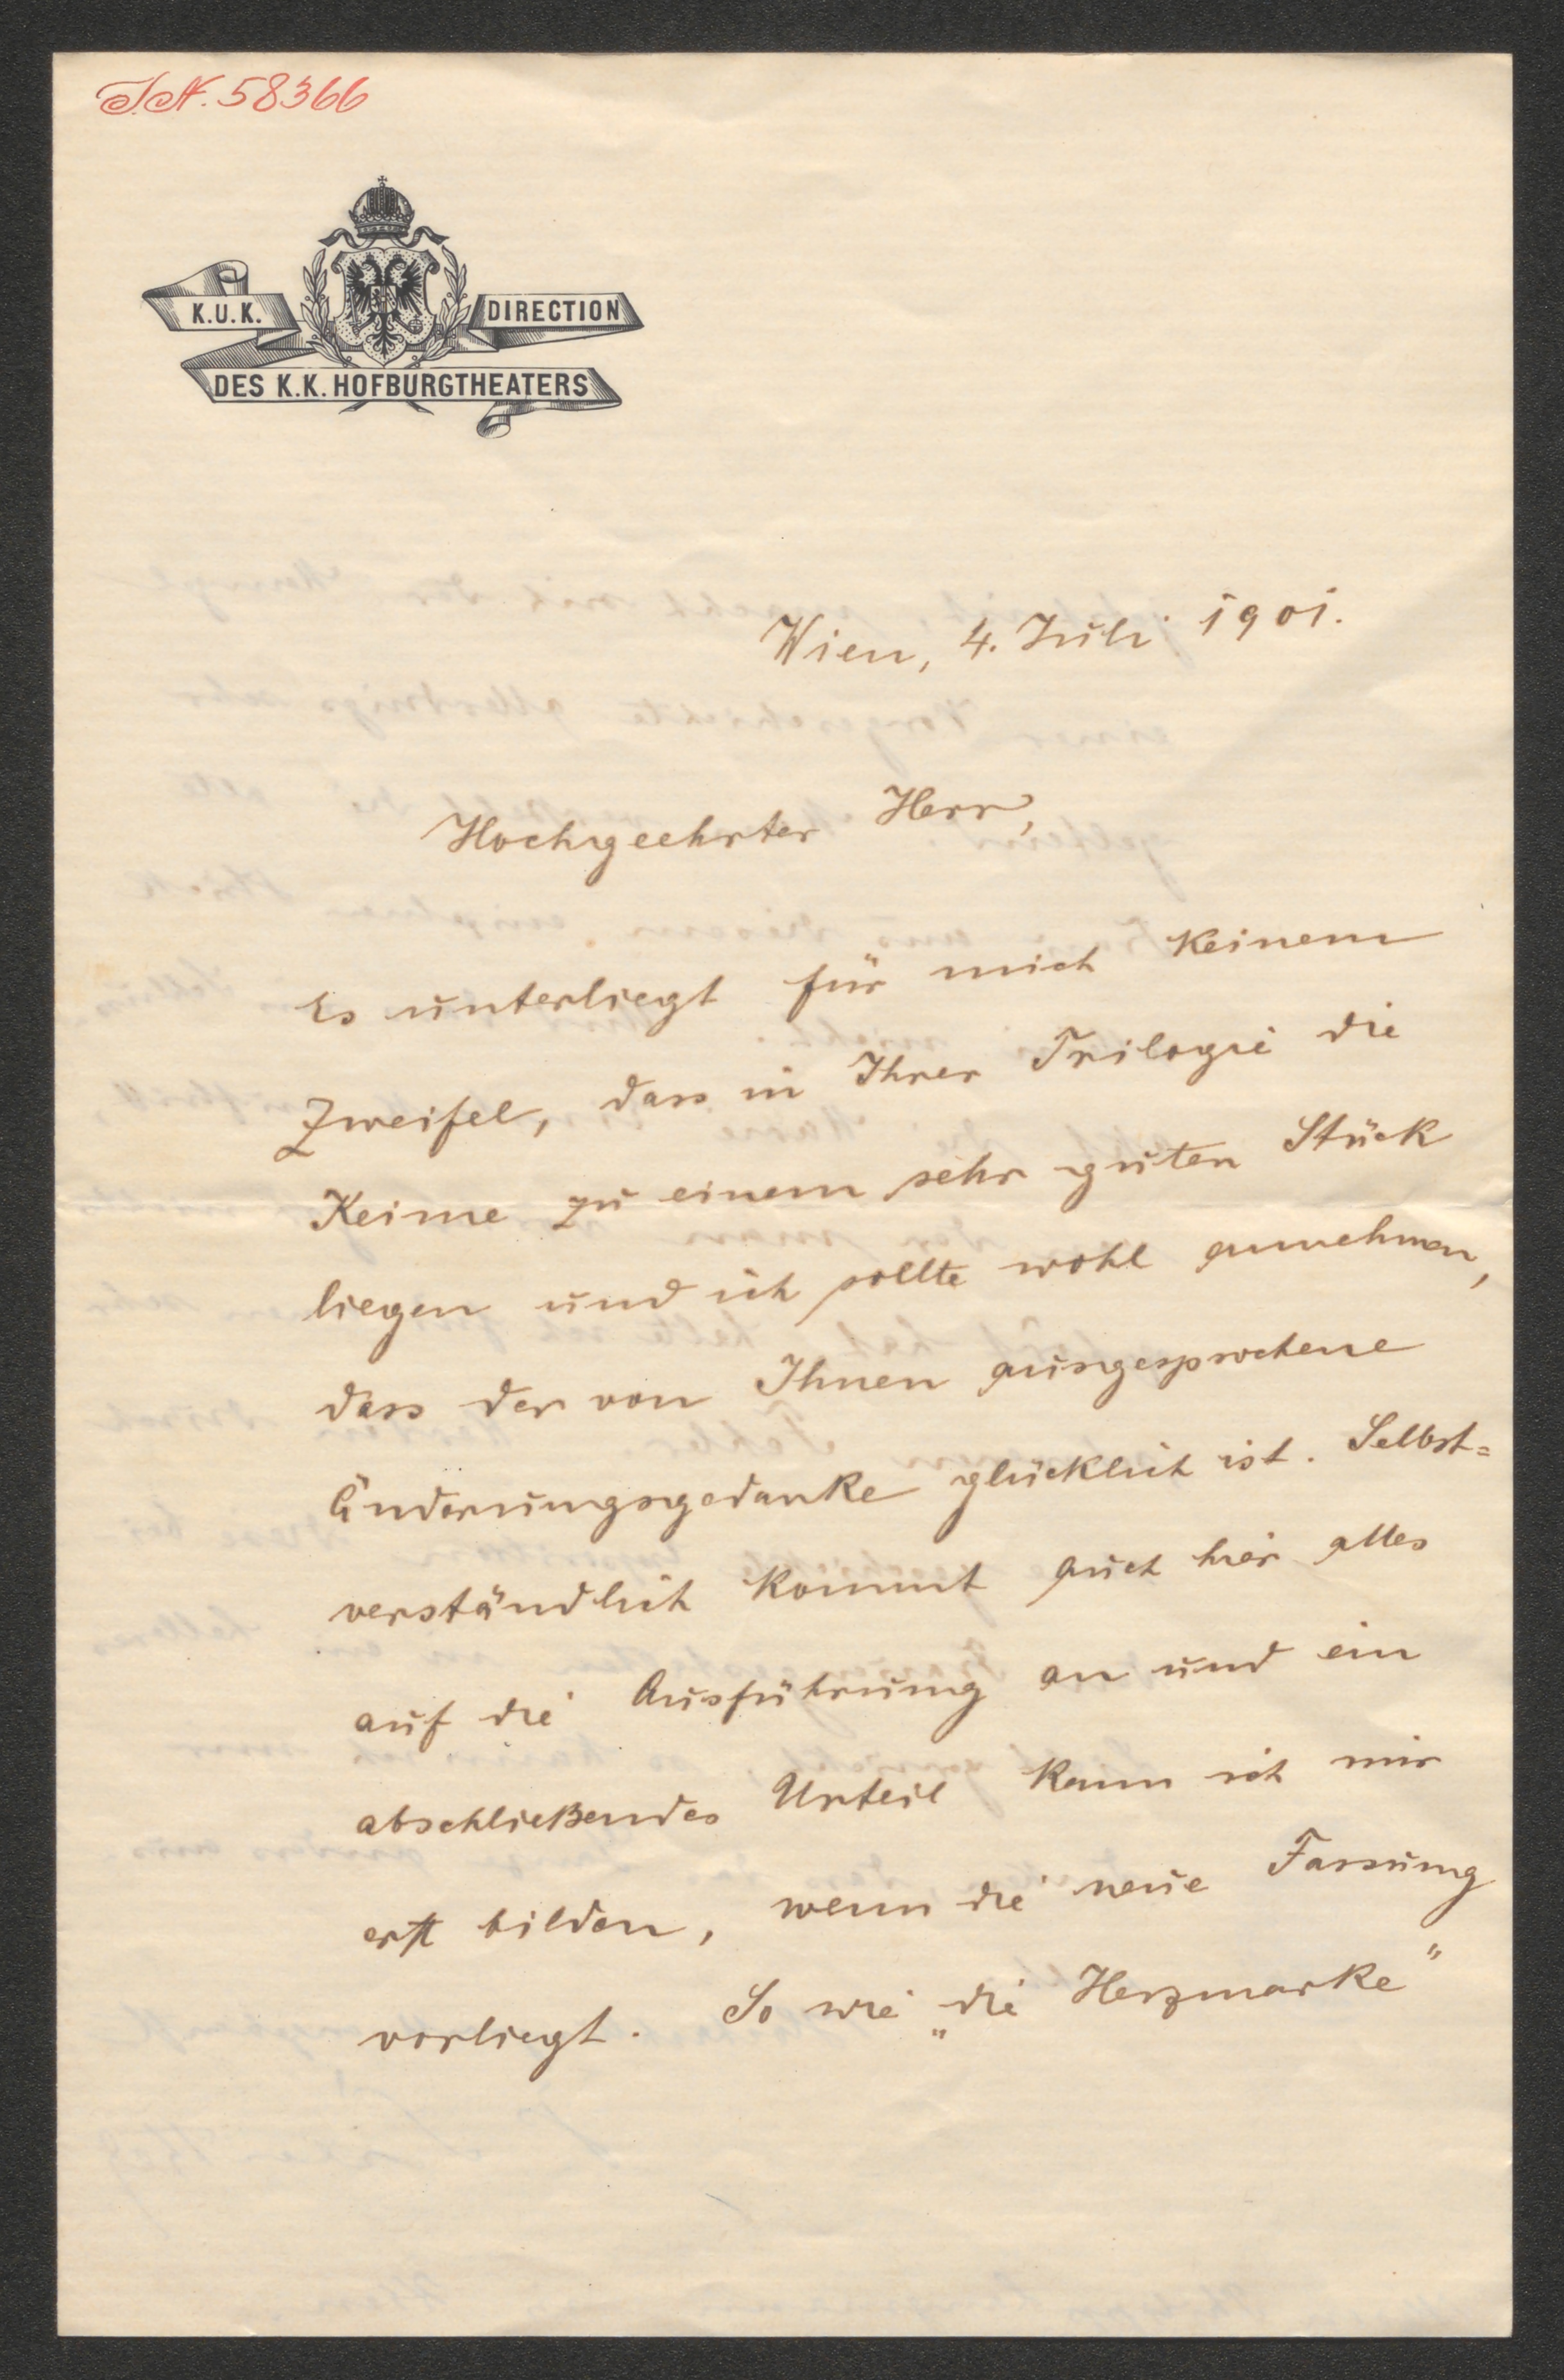 I.N. 58366
K.U.K. DIRECTION
DES K.K. HOFBURGTHEATERS
Wien, 4. Juli 1901.
Hochgeehrter Herr,
Es unterliegt für mich keinem
Zweifel, dass in Ihrer Trilogie die
Keime zu einem sehr guten Stück
liegen und ich sollte wohl annehmen,
dass der von Ihnen ausgesprochene
Änderungsgedanke glücklich ist. Selbst=
verständlich kommt auch hier alles
auf die Ausführung an und ein
abschließendes Urteil kann ich mir
erst bilden, wenn die neue Fassung
vorliegt. So wie „die Herzmarke"